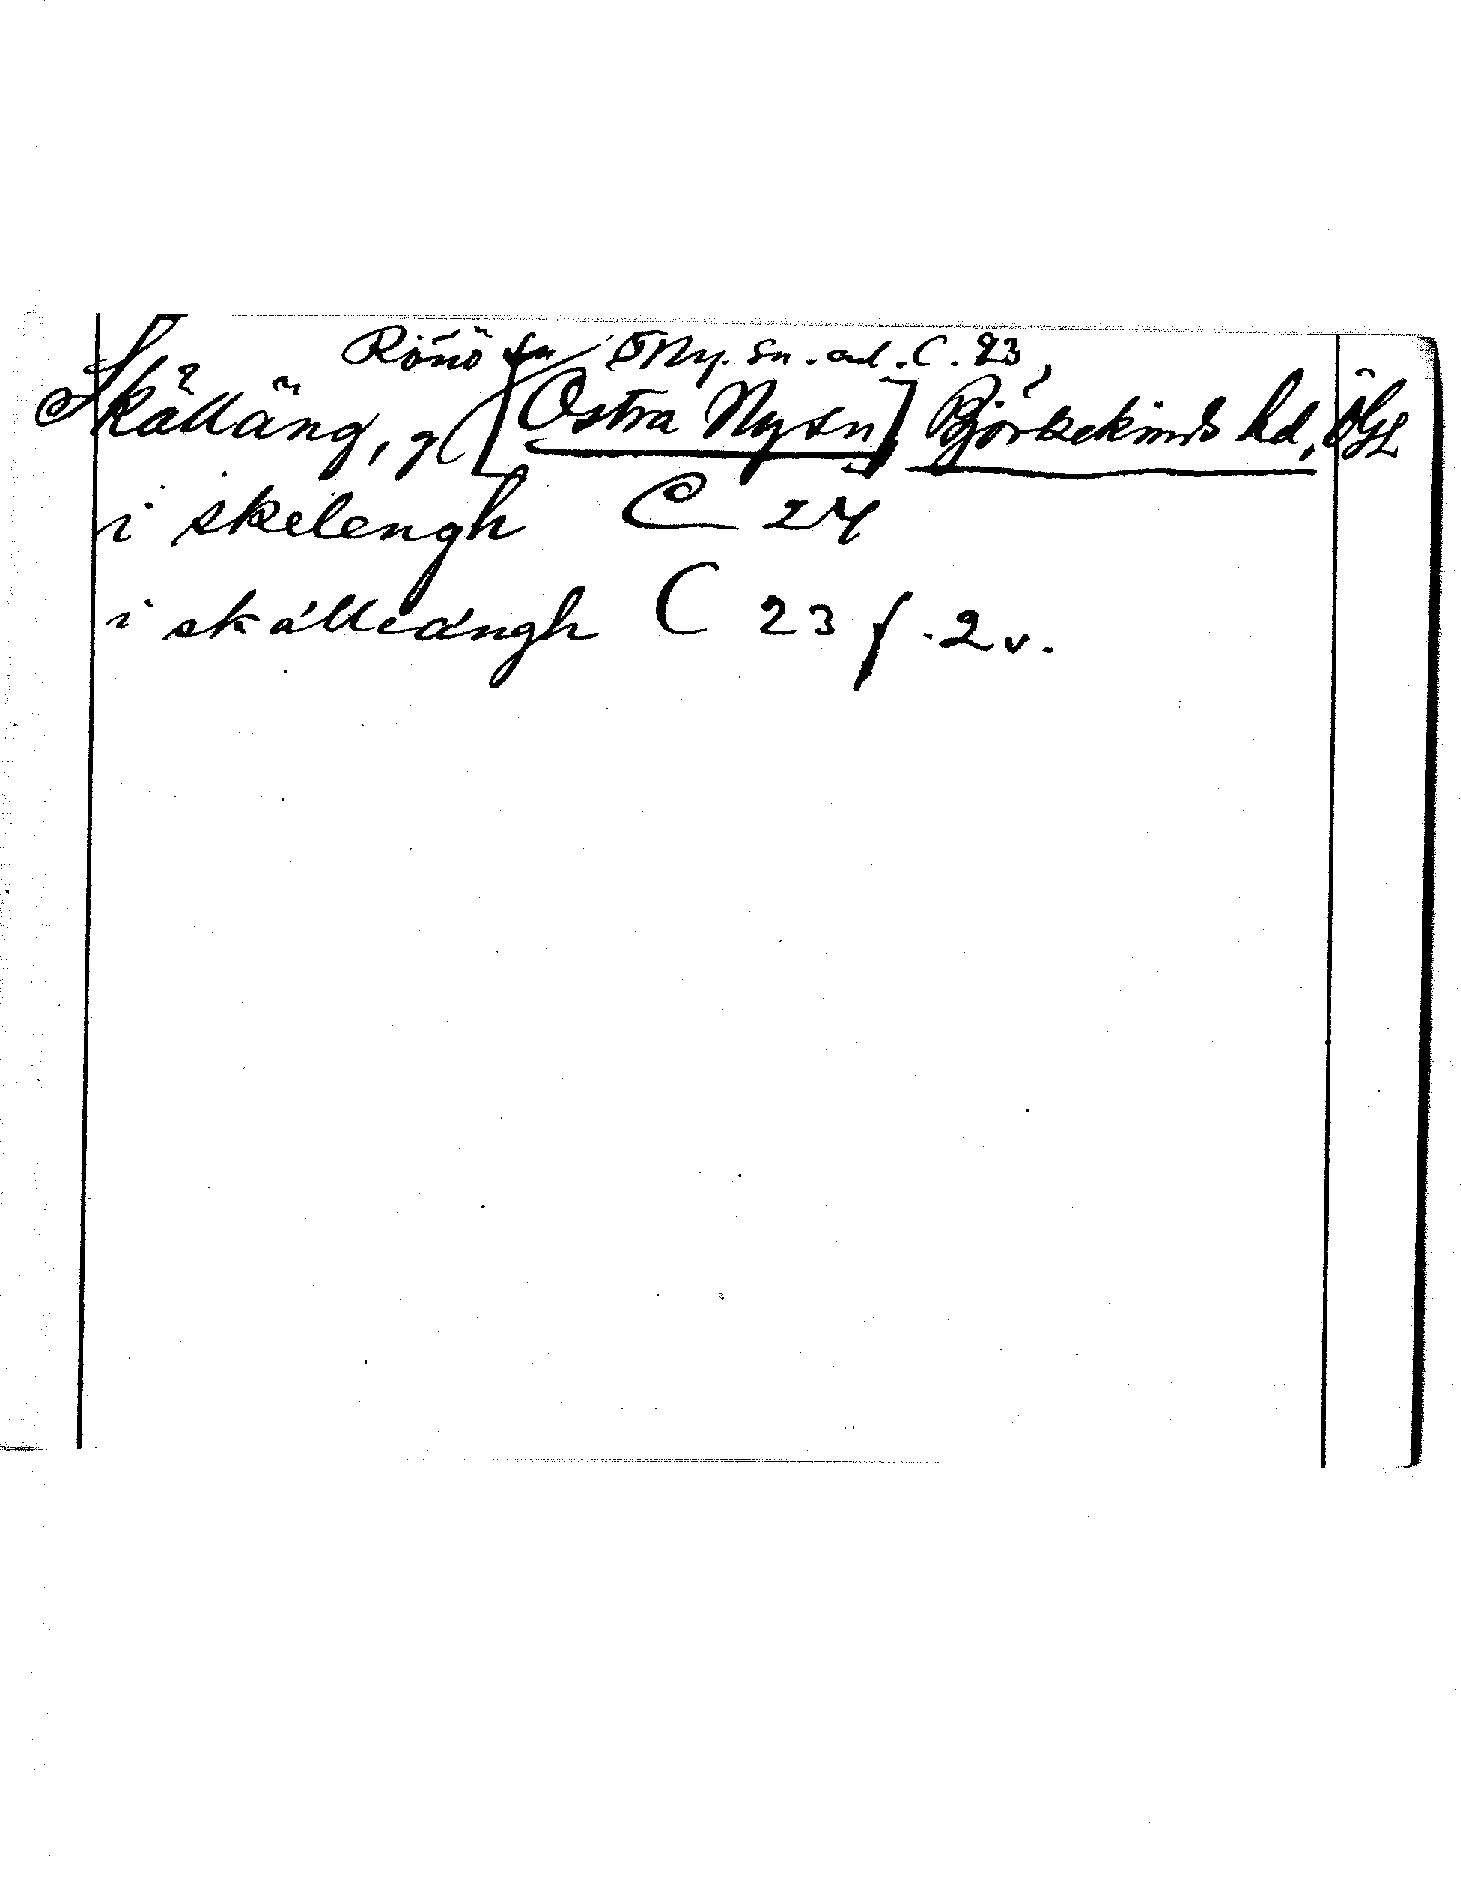 Rönö sn / ÖNy. sn. ad. C. 23,
Skälläng, g [Östra Ny sn] Björkekinds hd, Ögl
i skelengh C 24
i skälleängh C 23 f. 2v.